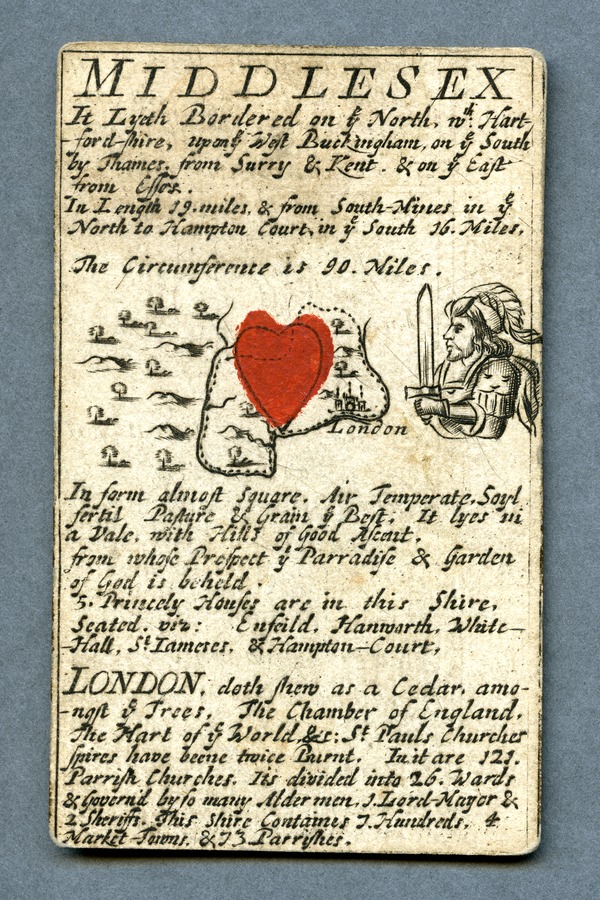 MIDDLESEX
It Lyeth Bordered on ẙ North, wth. Hart-
-ford-shire, upon ẙ West Buckingham, on ẙ South
by Thames, from Surry & Kent. & on ẙ East
from Essex.
In Length 19. miles, & from South-Mines in ẙ
North to Hampton Court, in ẙ South 16. Miles,
The Circumference is 90. Miles.
London
In form almost square. Air Temperate, Soyl
fertil Pasture & Grain ẙ Best; It lyes in
a Vale, with Hills of Good Ascent,
from whose Prospect ẙ Parradise & Garden
of God is beheld.
5. Princely Houses are in this Shire,
Seated. viz: Enfeild, Hanworth, White-
-Hall, St. Iameses, & Hampton-Court,
LONDON, doth shew as a Cedar, amo-
-ngst ẙ Trees, The Chamber of England,
The Hart of ẙ World, &c: St Pauls Churches
spires have beene twice Burnt. In it are 121.
Parrish Churches. Its divided into 26. Wards
& Govern'd by so many Aldermen, 1. Lord-Mayor &
2 Sheriffs. This Shire Containes 7. Hundreds, 4
Market-Towns, & 73 Parrishes.